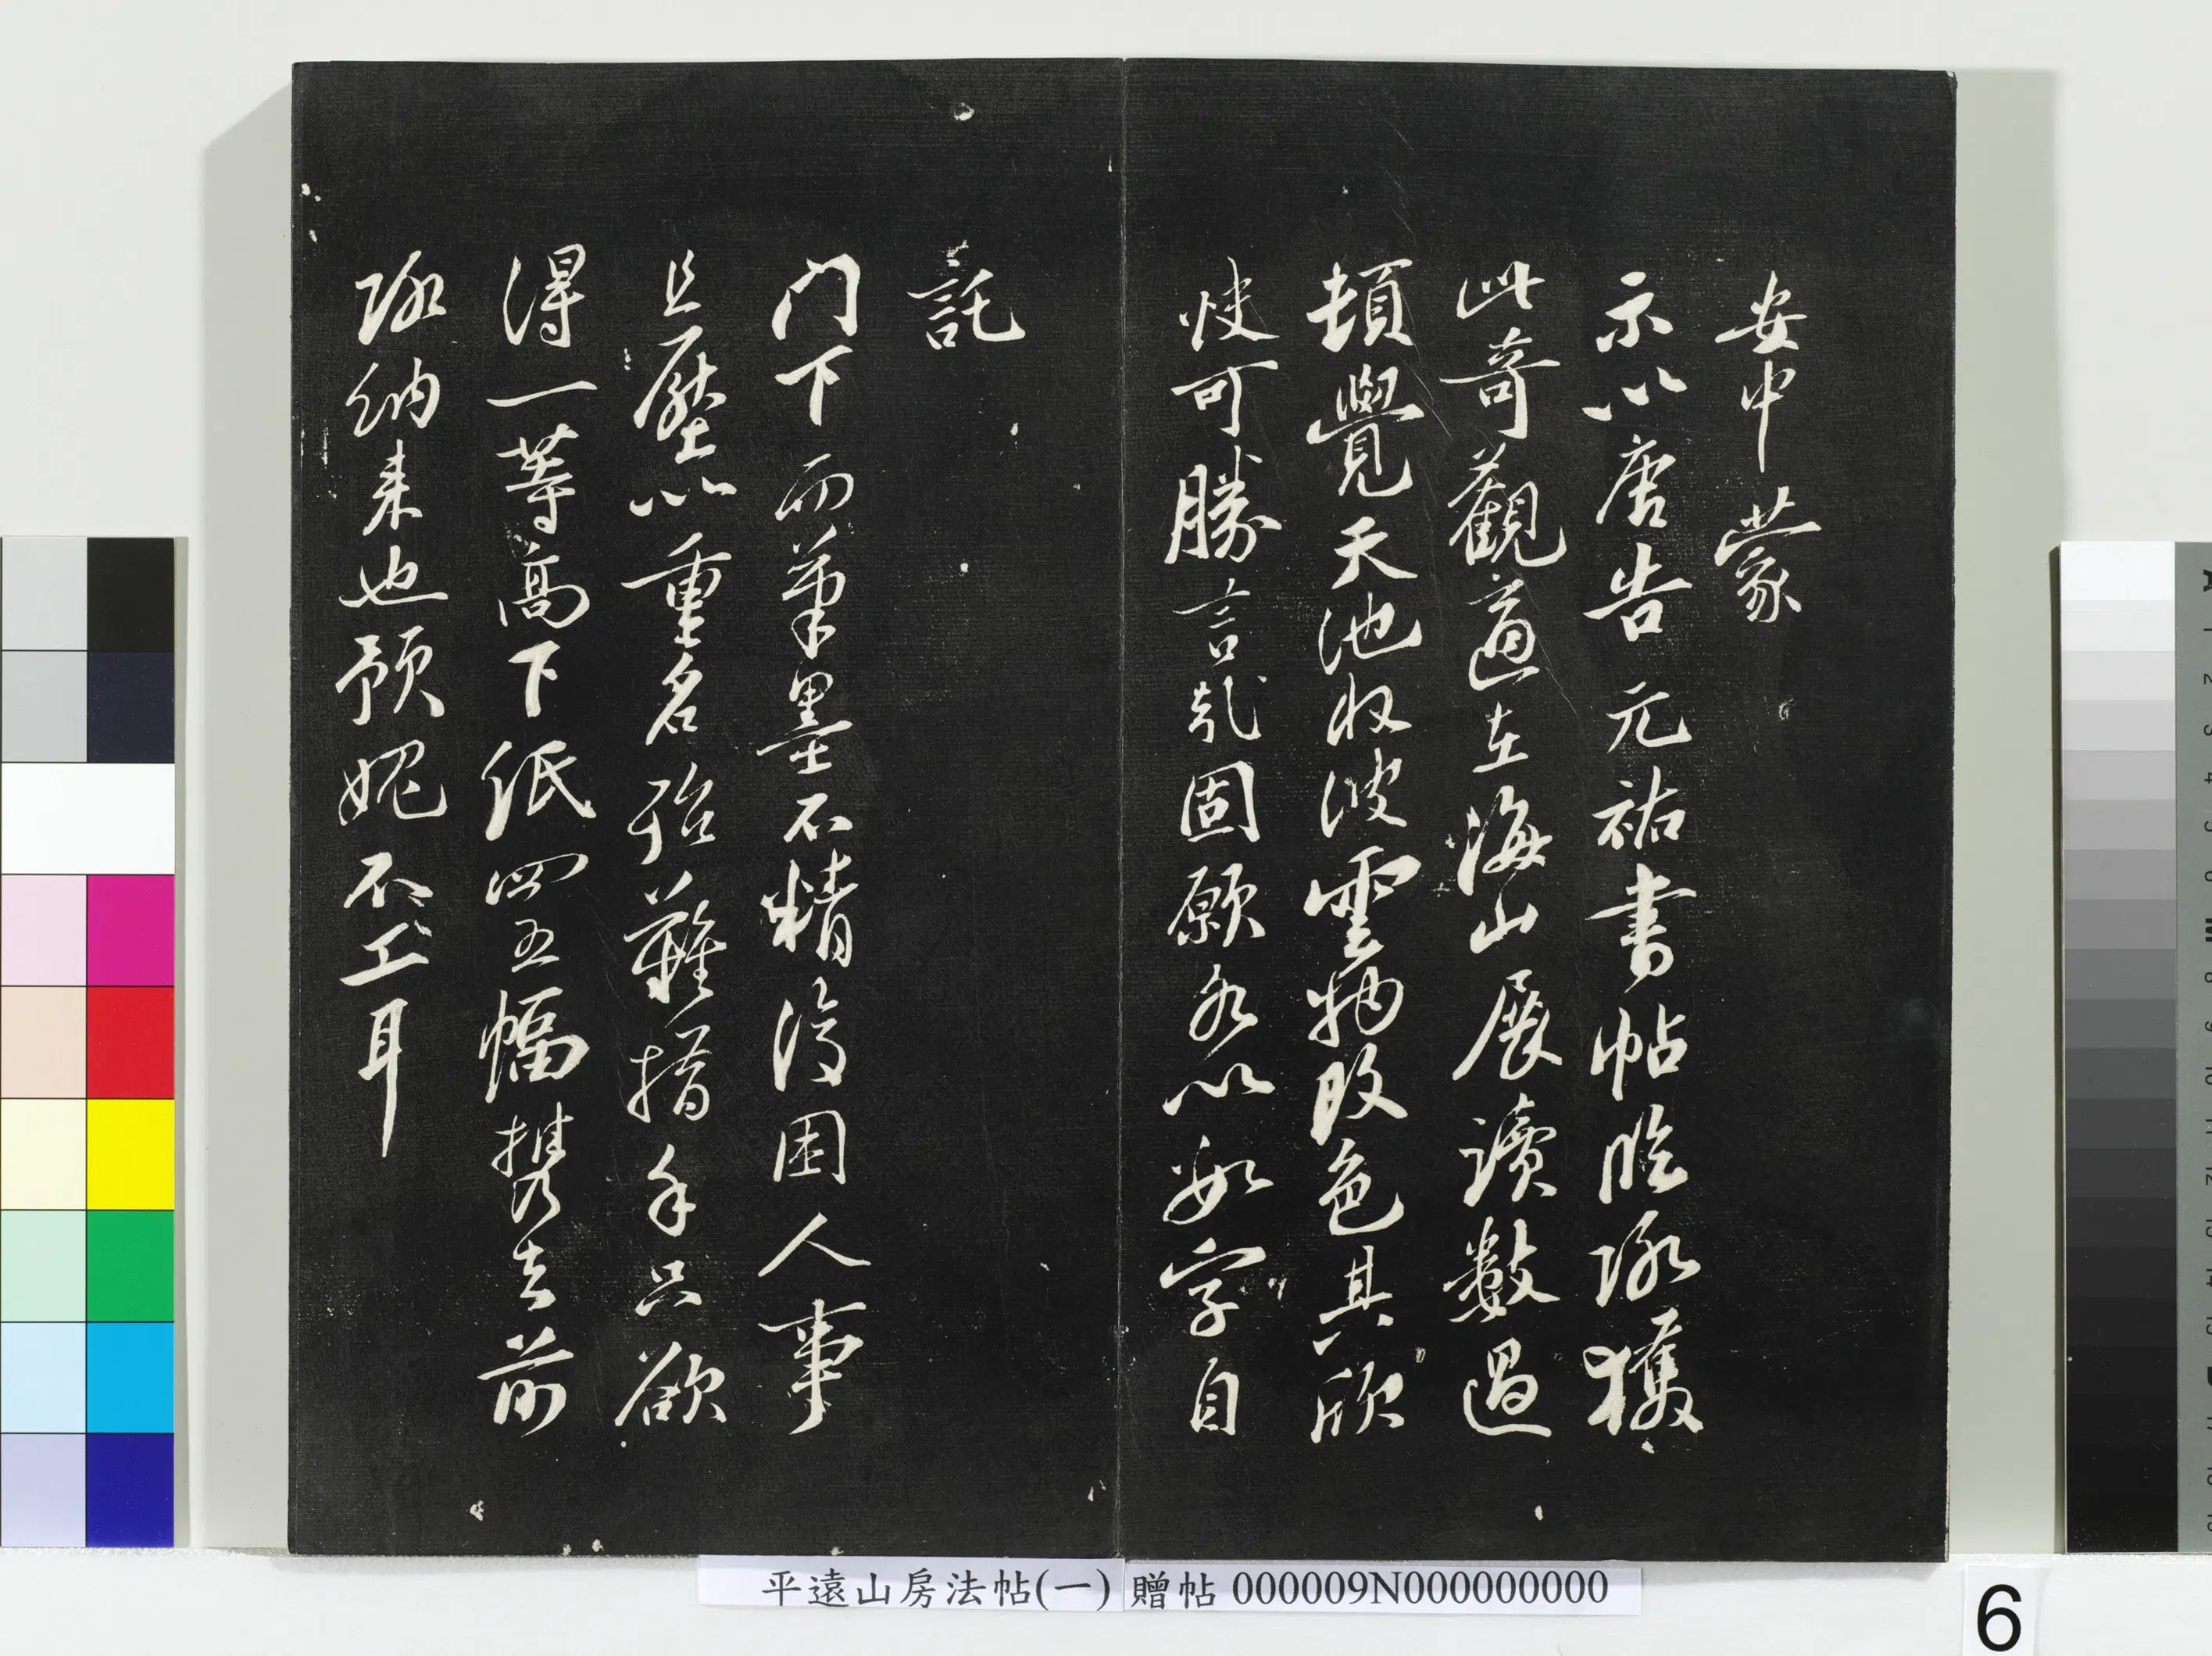 安中蒙
示以唐告元祐書帖臨沠獲
此奇觀適在海山展讀數過
頓覺天池收波雲物改色其欣
快可勝言哉固願名以數字自
託
門下而筆墨不精復困人事
且壓以重名殆難措手只欲
得一等高下紙四五幅攜去前
沠納来也預媿不工耳
平遠山房法帖(一) 贈帖 000009N000000000
6